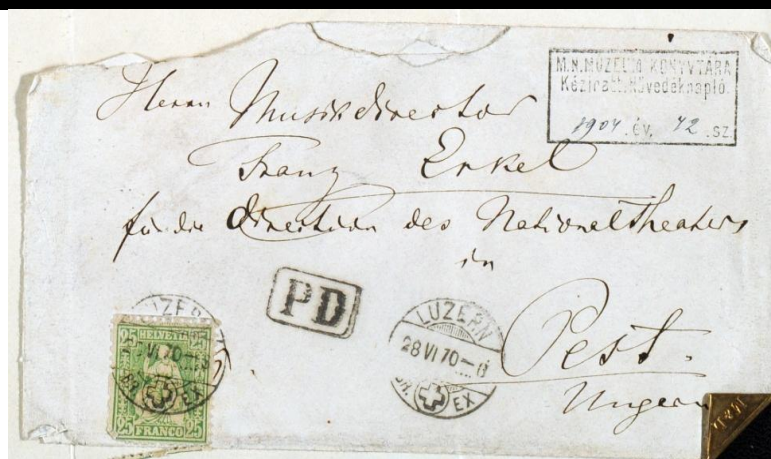 M.N.MÚZEUM KÖNYVTÁRA
Kéziratt. Növedéknapló.
1904. év. 42. sz.
Herrn Musikdirector
Franz Erkel
für die Direction des Nationaltheaters
in
Pest.
Ungarn
PD
LUZERN
28 VI 70 – 6
BR. EX
LUZERN
VI 70
BR. EX
25 HELVETIA 25
25 FRANCO 25